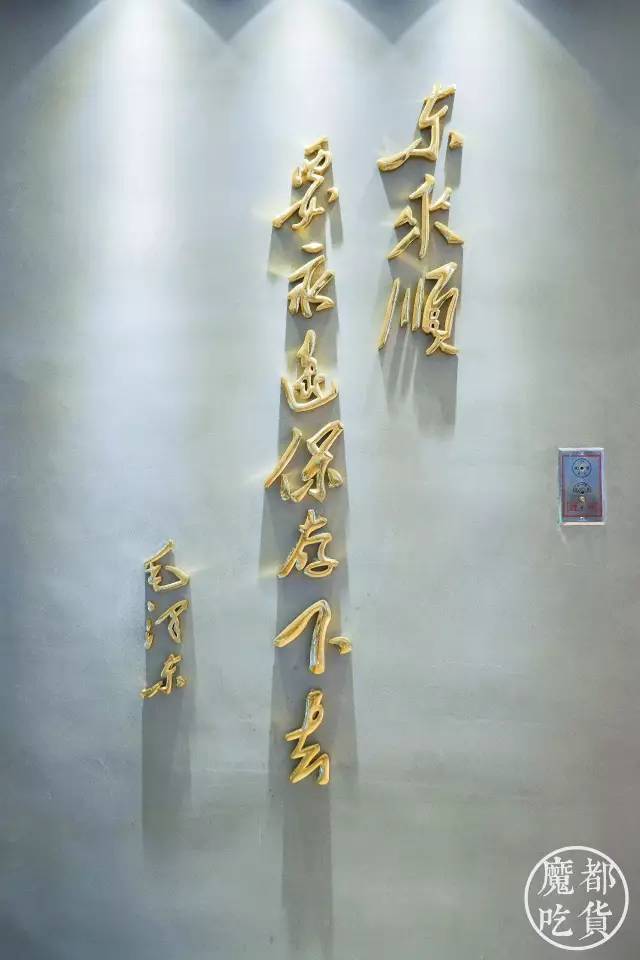 东来順
要永遠保存下去
毛泽东
魔都
吃貨